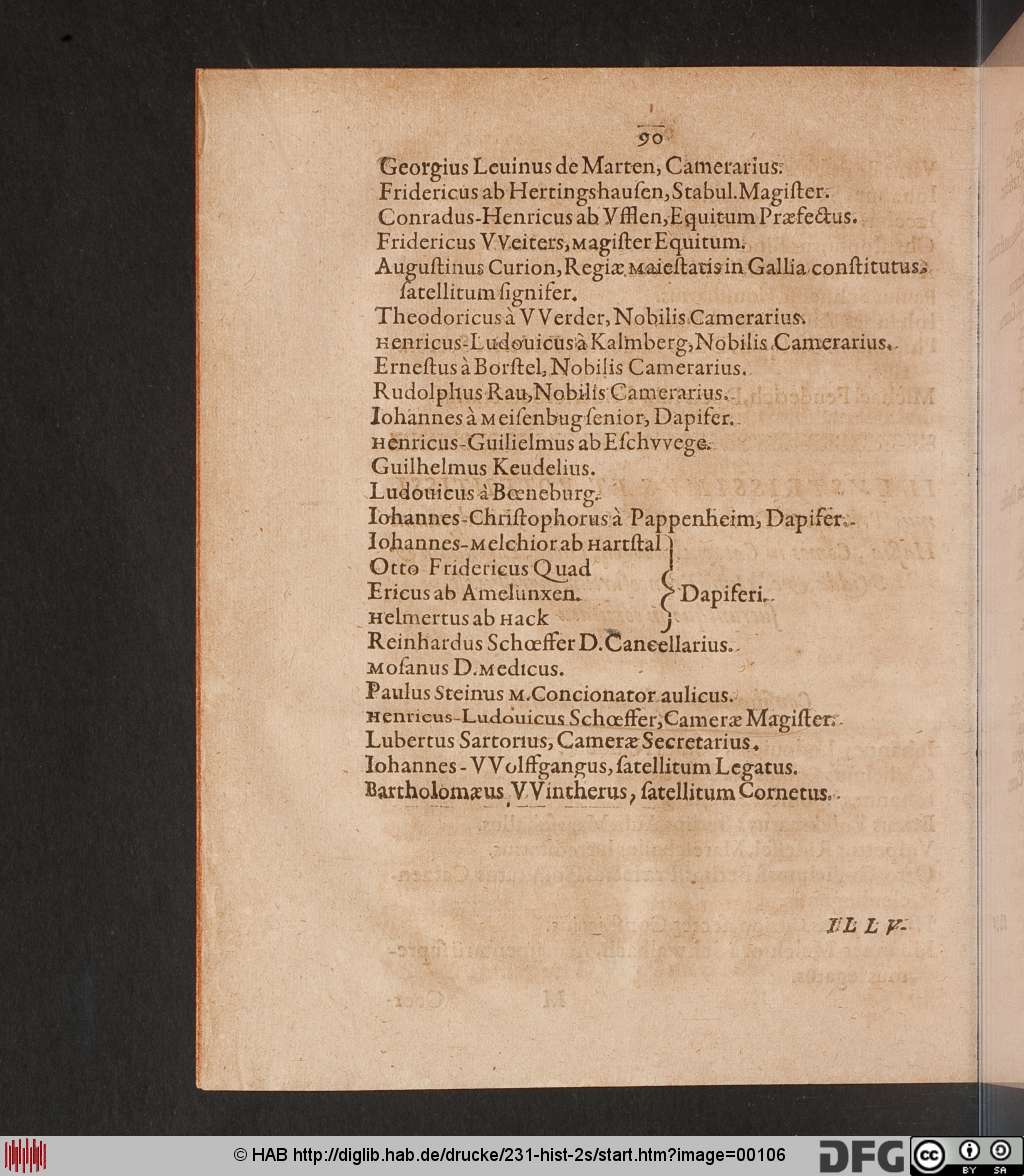 90
Georgius Leuinus de Marten, Camerarius.
Fridericus ab Hertingshauſen, Stabul. Magiſter.
Conradus-Henricus ab Vfflen, Equitum Præfectus.
Fridericus VVeiters, Magiſter Equitum.
Auguſtinus Curion, Regiæ Maieſtatis in Gallia conſtitutus
ſatellitum ſignifer.
Theodoricus à VVerder, Nobilis Camerarius.
Henricus-Ludouicus à Kalmberg, Nobilis Camerarius.
Erneſtus à Borſtel, Nobilis Camerarius.
Rudolphus Rau, Nobilis Camerarius.
Iohannes à Meiſenbug ſenior, Dapifer.
Henricus-Guilielmus ab Eſchvvege.
Guilhelmus Keudelius.
Ludouicus à Bœneburg.
Iohannes-Chriſtophorus à Pappenheim, Dapifer.
Iohannes-Melchior ab Hartſtal
Otto Fridericus Quad
Ericus ab Amelunxen. } Dapiferi.
Helmertus ab Hack
Reinhardus Schœffer D. Cancellarius.
Moſanus D. Medicus.
Paulus Steinus M. Concionator aulicus.
Henricus-Ludouicus Schœffer, Cameræ Magiſter.
Lubertus Sartorius, Cameræ Secretarius.
Iohannes-VVolffgangus, ſatellitum Legatus.
Bartholomæus VVintherus, ſatellitum Cornetus.
ILLV-
© HAB http://diglib.hab.de/drucke/231-hist-2s/start.htm?image=00106
DFG
cc
BY SA